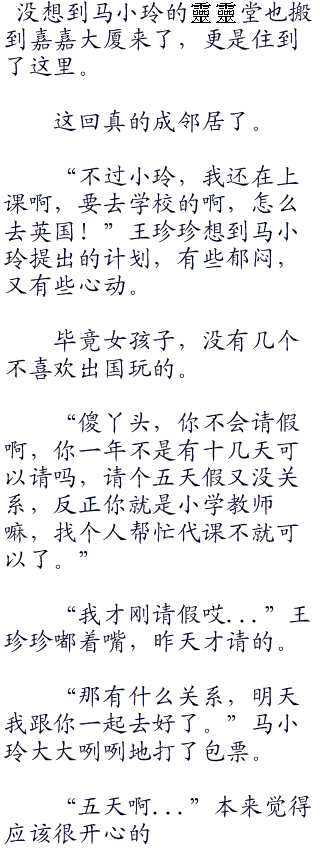 没想到马小玲的靈靈堂也搬
到嘉嘉大厦来了，更是住到
了这里。
这回真的成邻居了。
“不过小玲，我还在上
课啊，要去学校的啊，怎么
去英国！”王珍珍想到马小
玲提出的计划，有些郁闷，
又有些心动。
毕竟女孩子，没有几个
不喜欢出国玩的。
“傻丫头，你不会请假
啊，你一年不是有十几天可
以请吗，请个五天假又没关
系，反正你就是小学教师
嘛，找个人帮忙代课不就可
以了。”
“我才刚请假哎...”王
珍珍嘟着嘴，昨天才请的。
“那有什么关系，明天
我跟你一起去好了。”马小
玲大大咧咧地打了包票。
“五天啊...”本来觉得
应该很开心的